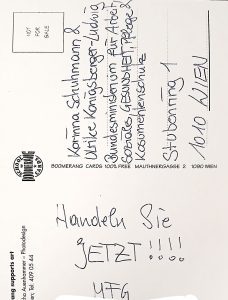 NOT
FOR
SALE
Korinna Schuhmann &
Ulrike Königsberger-Ludwig
Bundesministerium für Arbeit
Soziales, GESUNDHEIT, Pflege &
Konsumentenschutz
Stubenring 1
1010 WIEN
BOOMERANG CARDS 100% FREE MAUTHNERGASSE 2 1090 WIEN
Handeln Sie
JETZT!!!!
MFG
ang supports art
ho Auenhammer – Photodesign
en, Tel. 409 05 44